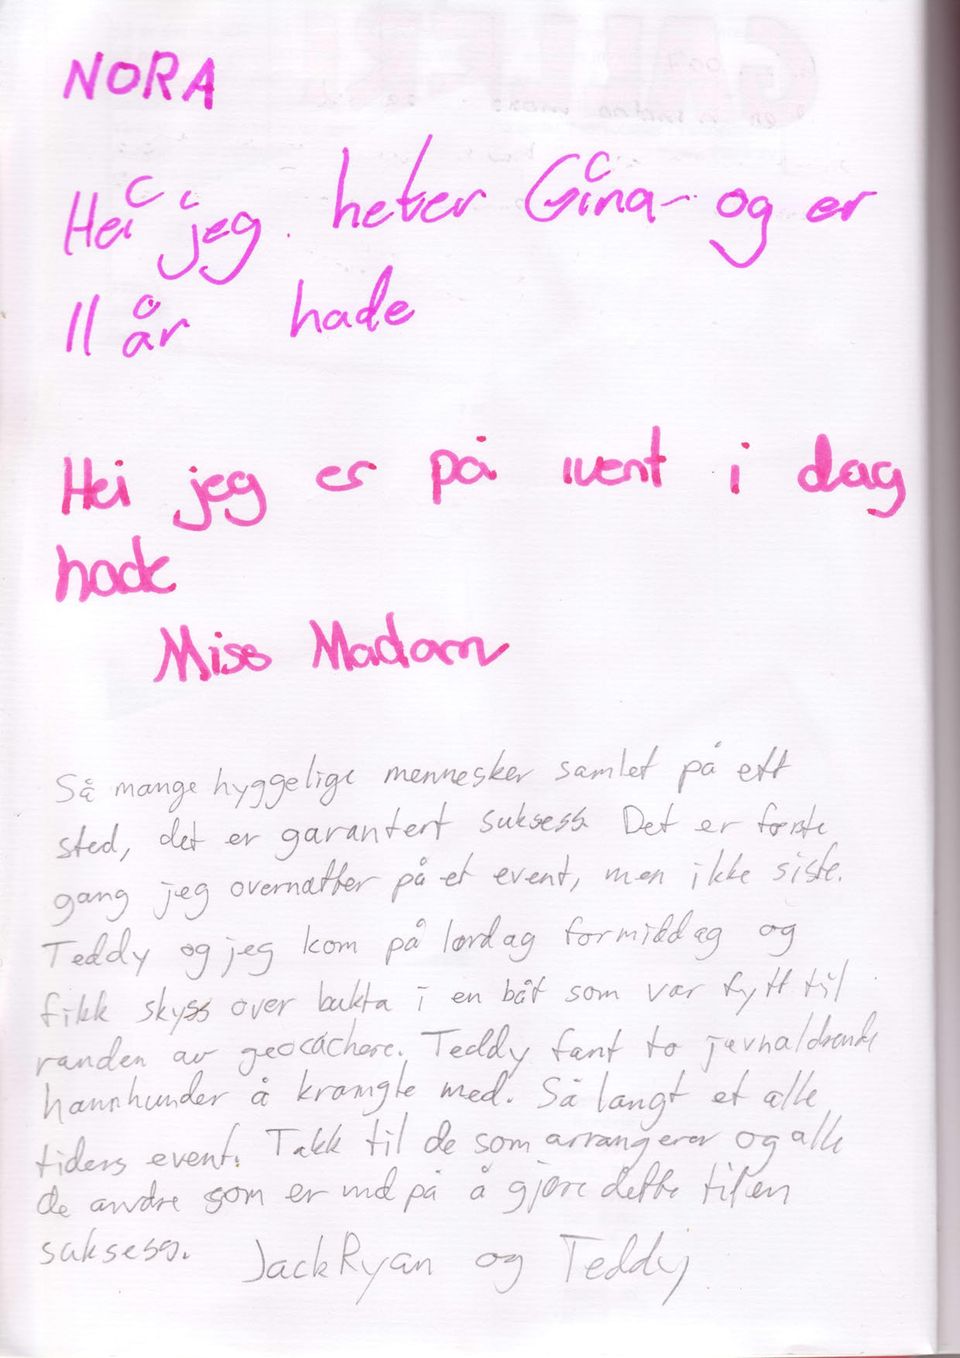 NORA
Hei jeg heter Gina og er
11 år hade
Hei jeg er på ivent i dag
hade
Miss Madam
Så mange hyggelige mennesker samlet på ett
sted, det er garantert suksess. Det er første
gang jeg overnatter på et event, men ikke siste.
Teddy og jeg kom på lørdag formiddag og
fikk skyss over bukta i en båt som var fylt til
randen av geocachere. Teddy fant to jevnaldrende
hannhunder å krangle med. Så langt et alle
tiders event. Takk til de som arrangerer og alle
de andre som er med på å gjøre dette til en
suksess.
JackRyan og Teddy